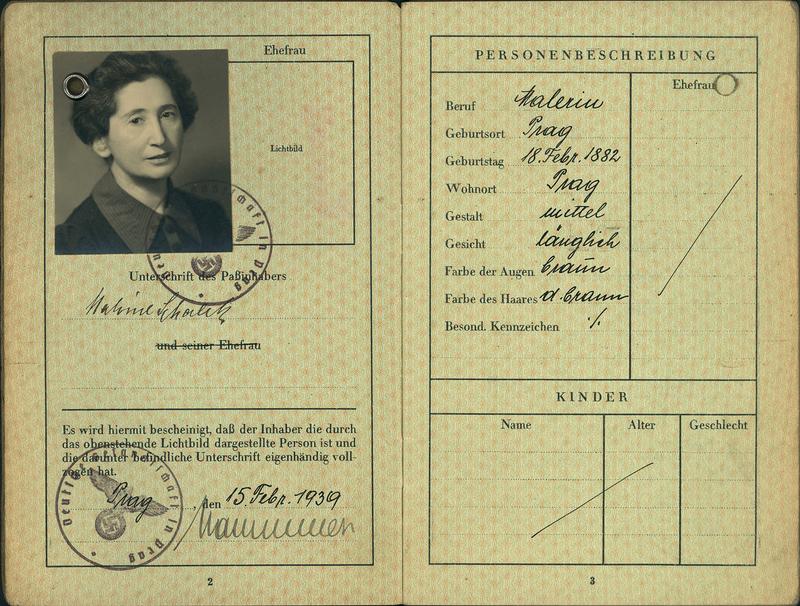 Ehefrau
Lichtbild
Unterschrift des Paßinhabers
Malvine Schalek
und seiner Ehefrau
Es wird hiermit bescheinigt, daß der Inhaber die durch
das obenstehende Lichtbild dargestellte Person ist und
die darunter befindliche Unterschrift eigenhändig voll-
zogen hat.
Prag, den 15. Febr. 1939
Deutsche Gesandtschaft in Prag
2
PERSONENBESCHREIBUNG
Ehefrau
Beruf Malerin
Geburtsort Prag
Geburtstag 18. Febr. 1882
Wohnort Prag
Gestalt mittel
Gesicht länglich
Farbe der Augen braun
Farbe des Haares d. braun
Besond. Kennzeichen ·/.
KINDER
Name Alter Geschlecht
3